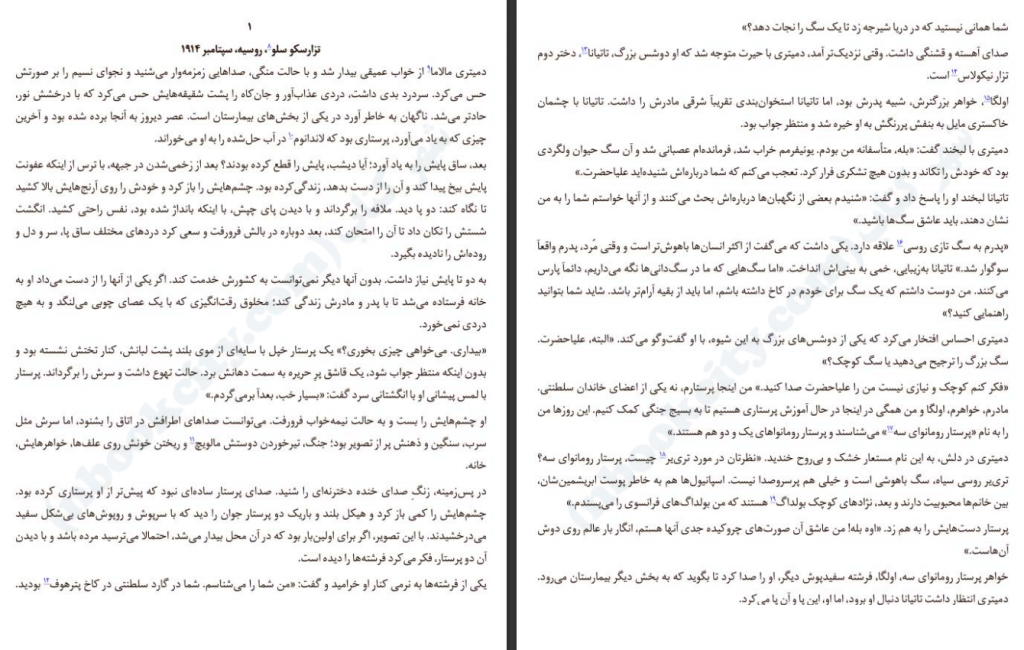 ۱
تزارسکو سلو۸، روسیه، سپتامبر ۱۹۱۴
دمیتری مالاما۹ از خواب عمیقی بیدار شد و با حالت منگی، صداهایی زمزمه‌وار می‌شنید و نجوای نسیم را بر صورتش
حس می‌کرد. سردرد بدی داشت، دردی عذاب‌آور و جان‌کاه را پشت شقیقه‌هایش حس می‌کرد که با درخشش نور،
حادتر می‌شد. ناگهان به خاطر آورد در یکی از بخش‌های بیمارستان است. عصر دیروز به آنجا برده شده بود و آخرین
چیزی که به یاد می‌آورد، پرستاری بود که لاندانوم۱۰ در آب حل‌شده را به او می‌خوراند.
بعد، ساق پایش را به یاد آورد؛ آیا دیشب، پایش را قطع کرده بودند؟ بعد از زخمی‌شدن در جبهه، با ترس از اینکه عفونت
پایش بیخ پیدا کند و آن را از دست بدهد، زندگی کرده بود. چشم‌هایش را باز کرد و خودش را روی آرنج‌هایش بالا کشید
تا نگاه کند: دو پا دید. ملافه را برگرداند و با دیدن پای چپش، با اینکه بانداژ شده بود، نفس راحتی کشید. انگشت
شستش را تکان داد تا آن را امتحان کند، بعد دوباره در بالش فرورفت و سعی کرد دردهای مختلف ساق پا، سر و دل و
روده‌اش را نادیده بگیرد.
به دو تا پایش نیاز داشت. بدون آنها دیگر نمی‌توانست به کشورش خدمت کند. اگر یکی از آنها را از دست می‌داد او به
خانه فرستاده می‌شد تا با پدر و مادرش زندگی کند؛ مخلوق رقت‌انگیزی که با یک عصای چوبی می‌لنگد و به هیچ
دردی نمی‌خورد.
«بیداری. می‌خواهی چیزی بخوری؟» یک پرستار خپل با سایه‌ای از موی بلند پشت لبانش، کنار تختش نشسته بود و
بدون اینکه منتظر جواب شود، یک قاشق پرِ حریره به سمت دهانش برد. حالت تهوع داشت و سرش را برگرداند. پرستار
با لمس پیشانی او با انگشتانی سرد گفت: «بسیار خب، بعداً برمی‌گردم.»
او چشم‌هایش را بست و به حالت نیمه‌خواب فرورفت. می‌توانست صداهای اطرافش در اتاق را بشنود، اما سرش مثل
سرب، سنگین و ذهنش پر از تصویر بود؛ جنگ، تیرخوردن دوستش مالویچ۱۱ و ریختن خونش روی علف‌ها، خواهرهایش،
خانه.
در پس‌زمینه، زنگِ صدای خنده دخترنه‌ای را شنید. صدای پرستار ساده‌ای نبود که پیش‌تر از او پرستاری کرده بود.
چشم‌هایش را کمی باز کرد و هیکل بلند و باریک دو پرستار جوان را دید که با سرپوش و روپوش‌های بی‌شکل سفید
می‌درخشیدند. با این تصویر، اگر برای اولین‌بار بود که در آن محل بیدار می‌شد، احتمالا می‌ترسید مرده باشد و با دیدن
آن دو پرستار، فکر می‌کرد فرشته‌ها را دیده است.
یکی از فرشته‌ها به نرمی کنار او خرامید و گفت: «من شما را می‌شناسم. شما در گارد سلطنتی در کاخ پترهوف۱۲ بودید.
شما همانی نیستید که در دریا شیرجه زد تا یک سگ را نجات دهد؟»
صدای آهسته و قشنگی داشت. وقتی نزدیک‌تر آمد، دمیتری با حیرت متوجه شد که او دوشس بزرگ، تاتیانا۱۳، دختر دوم
تزار نیکولاس۱۴ است.
اولگا۱۵، خواهر بزرگترش، شبیه پدرش بود، اما تاتیانا استخوان‌بندی تقریباً شرقی مادرش را داشت. تاتیانا با چشمان
خاکستری مایل به بنفش پررنگش به او خیره شد و منتظر جواب بود.
دمیتری با لبخند گفت: «بله، متأسفانه من بودم. یونیفرمم خراب شد، فرمانده‌ام عصبانی شد و آن سگ حیوان ولگردی
بود که خودش را تکاند و بدون هیچ تشکری فرار کرد. تعجب می‌کنم که شما درباره‌اش شنیده‌اید علیاحضرت.»
تاتیانا لبخند او را پاسخ داد و گفت: «شنیدم بعضی از نگهبان‌ها درباره‌اش بحث می‌کنند و از آنها خواستم شما را به من
نشان دهند، باید عاشق سگ‌ها باشید.»
«پدرم به سگ تازی روسی۱۶ علاقه دارد. یکی داشت که می‌گفت از اکثر انسان‌ها باهوش‌تر است و وقتی مُرد، پدرم واقعاً
سوگوار شد.» تاتیانا به‌زیبایی، خمی به بینی‌اش انداخت. «اما سگ‌هایی که ما در سگ‌دانی‌ها نگه می‌داریم، دائماً پارس
می‌کنند. من دوست داشتم که یک سگ برای خودم در کاخ داشته باشم، اما باید از بقیه آرام‌تر باشد. شاید شما بتوانید
راهنمایی کنید؟»
دمیتری احساس افتخار می‌کرد که یکی از دوشس‌های بزرگ به این شیوه، با او گفت‌وگو می‌کند. «البته، علیاحضرت.
سگ بزرگ را ترجیح می‌دهید یا سگ کوچک؟»
«فکر کنم کوچک و نیازی نیست من را علیاحضرت صدا کنید.» من اینجا پرستارم، نه یکی از اعضای خاندان سلطنتی.
مادرم، خواهرم، اولگا و من همگی در اینجا در حال آموزش پرستاری هستیم تا به بسیج جنگی کمک کنیم. این روزها من
را به نام «پرستار رومانوای سه۱۷» می‌شناسند و پرستار رومانواهای یک و دو هم هستند.»
دمیتری در دلش، به این نام مستعار خشک و بی‌روح خندید. «نظرتان در مورد تری‌یر۱۸ چیست، پرستار رومانوای سه؟
تری‌یر روسی سیاه، سگ باهوشی است و خیلی هم پرسروصدا نیست. اسپانیول‌ها هم به خاطر پوست ابریشمین‌شان،
بین خانم‌ها محبوبیت دارند و بعد، نژادهای کوچک بولداگ۱۹ هستند که من بولداگ‌های فرانسوی را می‌پسندم.»
پرستار دست‌هایش را به هم زد. «اوه بله! من عاشق آن صورت‌های چروکیده جدی آنها هستم، انگار بار عالم روی دوش
آن‌هاست.»
خواهر پرستار رومانوای سه، اولگا، فرشته سفیدپوش دیگر، او را صدا کرد تا بگوید که به بخش دیگر بیمارستان می‌رود.
دمیتری انتظار داشت تاتیانا دنبال او برود، اما او، این پا و آن پا می‌کرد.